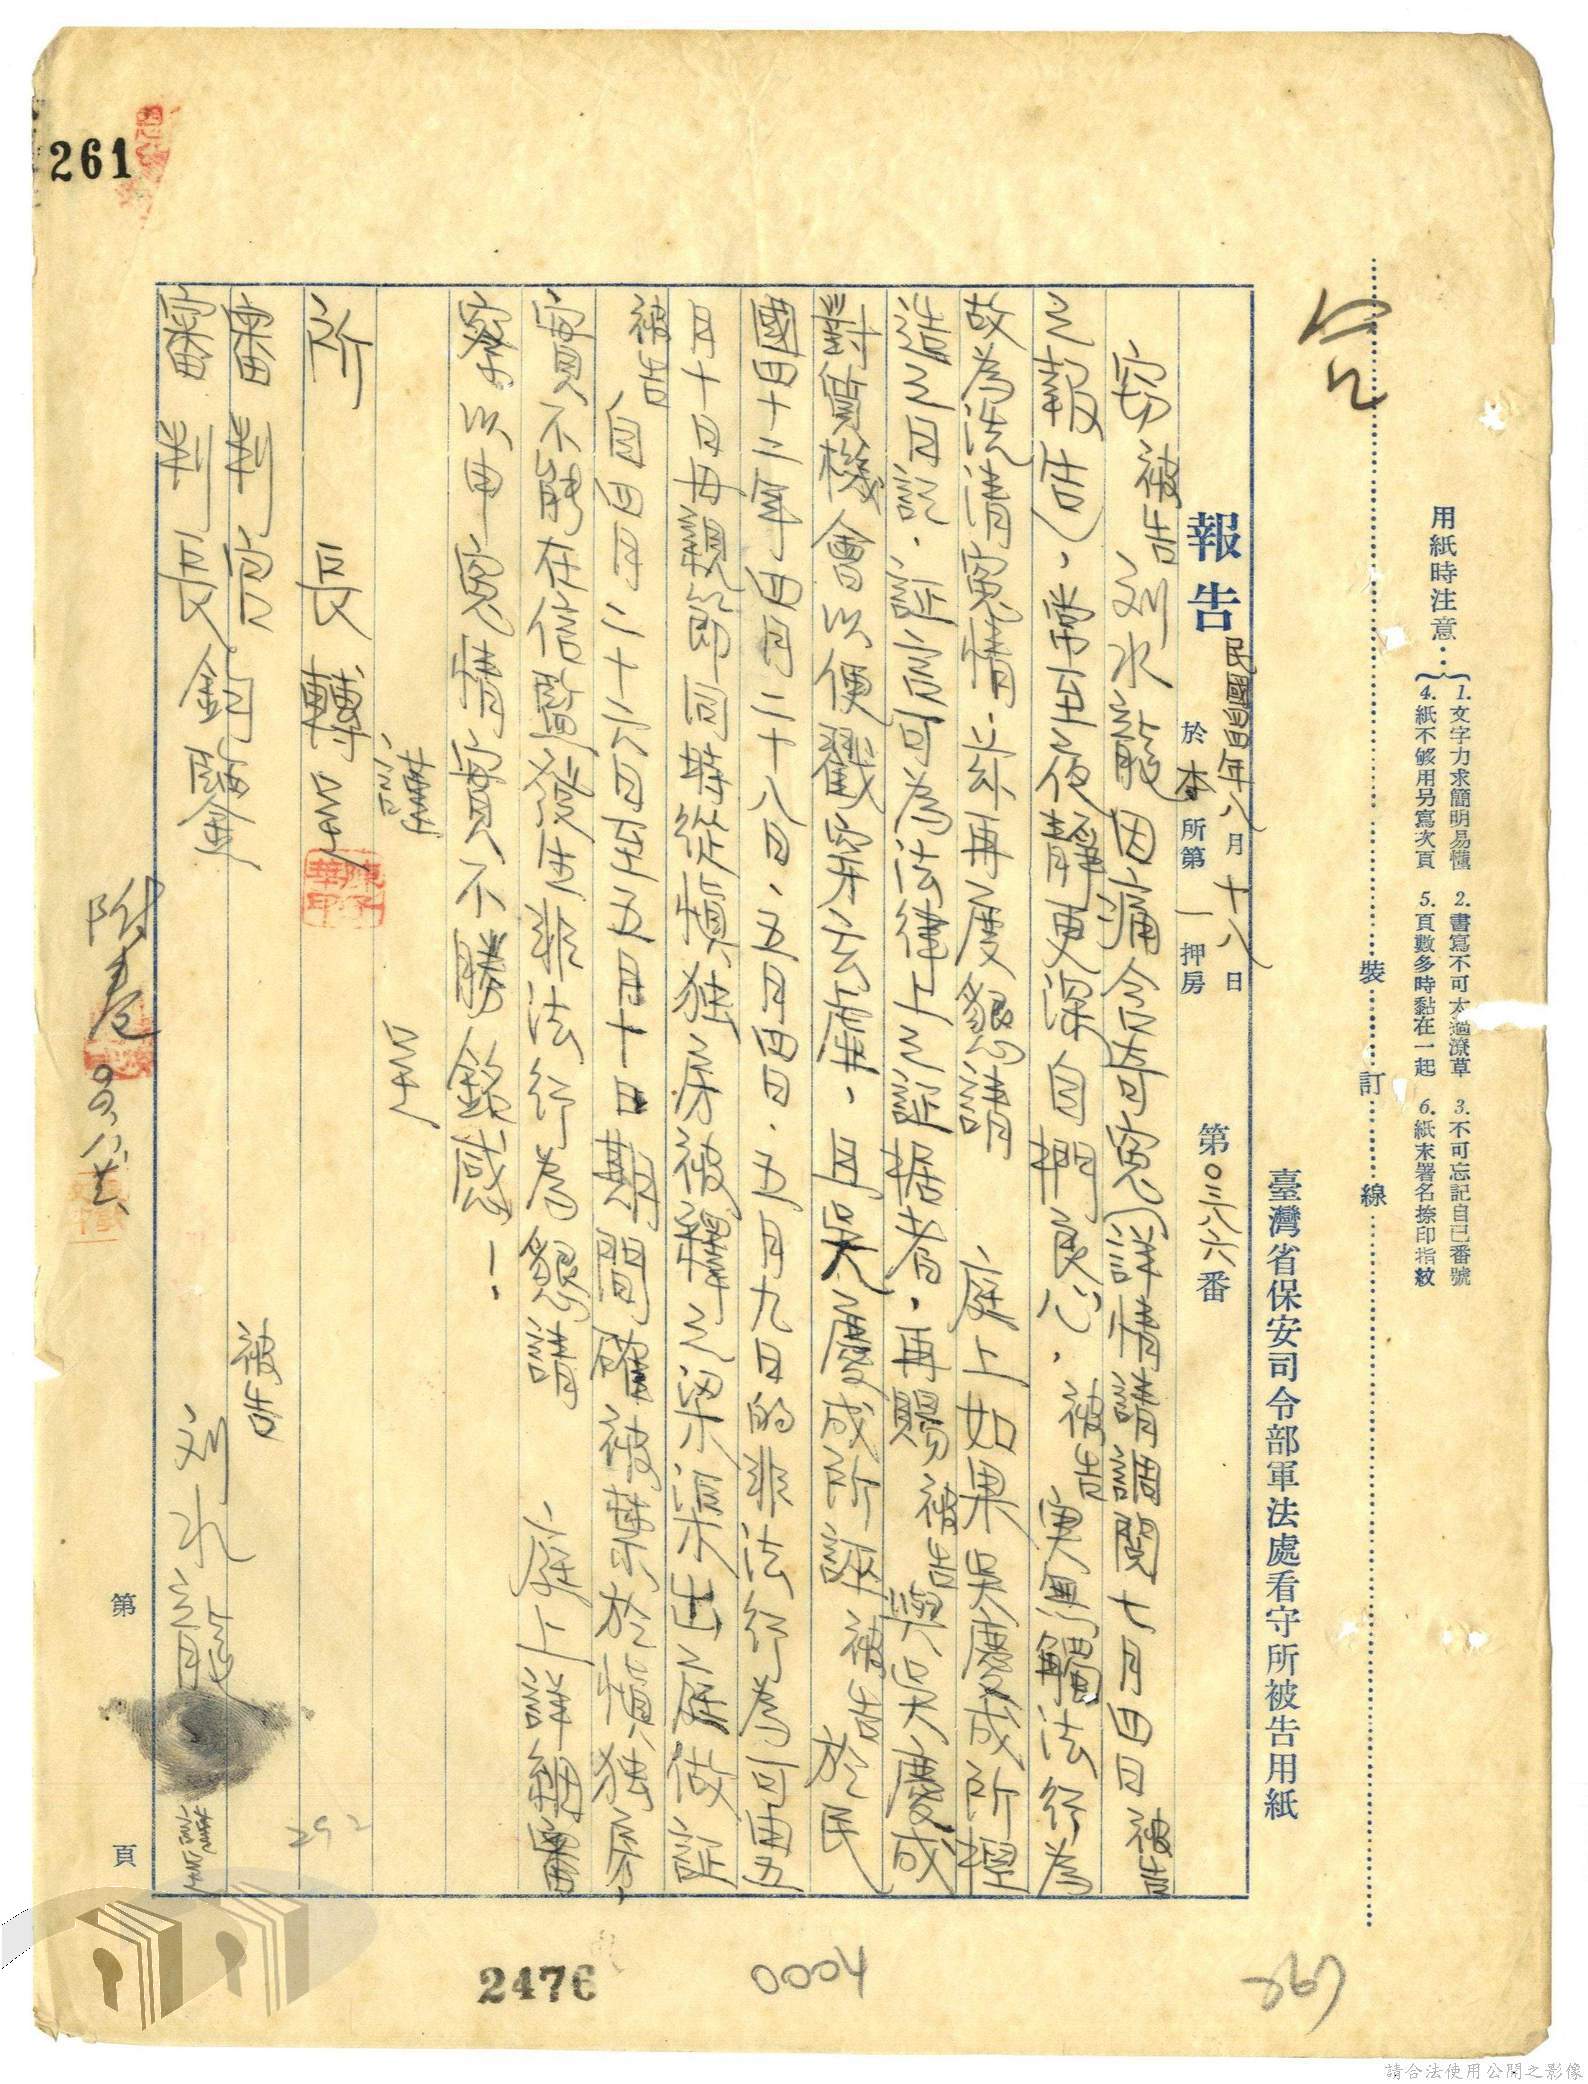 用紙時注意：
1. 文字力求簡明易懂 2. 書寫不可太過潦草 3. 不可忘記自己番號
4. 紙不够用另寫次頁 5. 頁數多時黏在一起 6. 紙末署名捺印指紋
裝訂線
臺灣省保安司令部軍法處看守所被告用紙
報告 民國四四年八月十八日
於本所第一押房 第〇三八六番
窃被告刘水龍因痛含奇冤(詳情請調閱七月四日被告
之報告)，常至夜靜更深自捫良心，被告実無觸法行為
故為洗清冤情，玆再度懇請 庭上如果吳慶成所揑
造之自說，証言可為法律上之証据者，再賜被告與吳慶成
對質機會以便戳穿云虛，且吳慶成所誣被告於民
國四十三年四月二十八日，五月四日，五月九日的非法行為可由五
月十日母親節同時從慎独房被釋之梁渠出庭做証
被告自四月二十六日至五月十日期間確被禁於慎独房，
實不能在信監發生非法行為懇請 庭上詳細審
察以申冤情實不勝銘感！
謹 呈
所長轉呈
陳子華印
審判官
審判長 鈞鑒
被告 刘水龍 謹呈
附卷
第 頁
261
292
2476
0004
267
請合法使用公開之影像